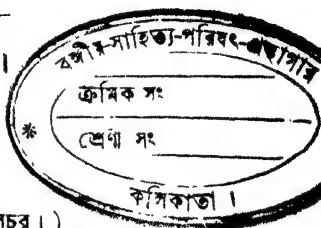 ।
বঙ্গীয়-সাহিত্য-পরিষৎ-গ্রন্থাগার
ক্রমিক সং
* শ্রেণী সং
কলিকাতা ।
চর । )